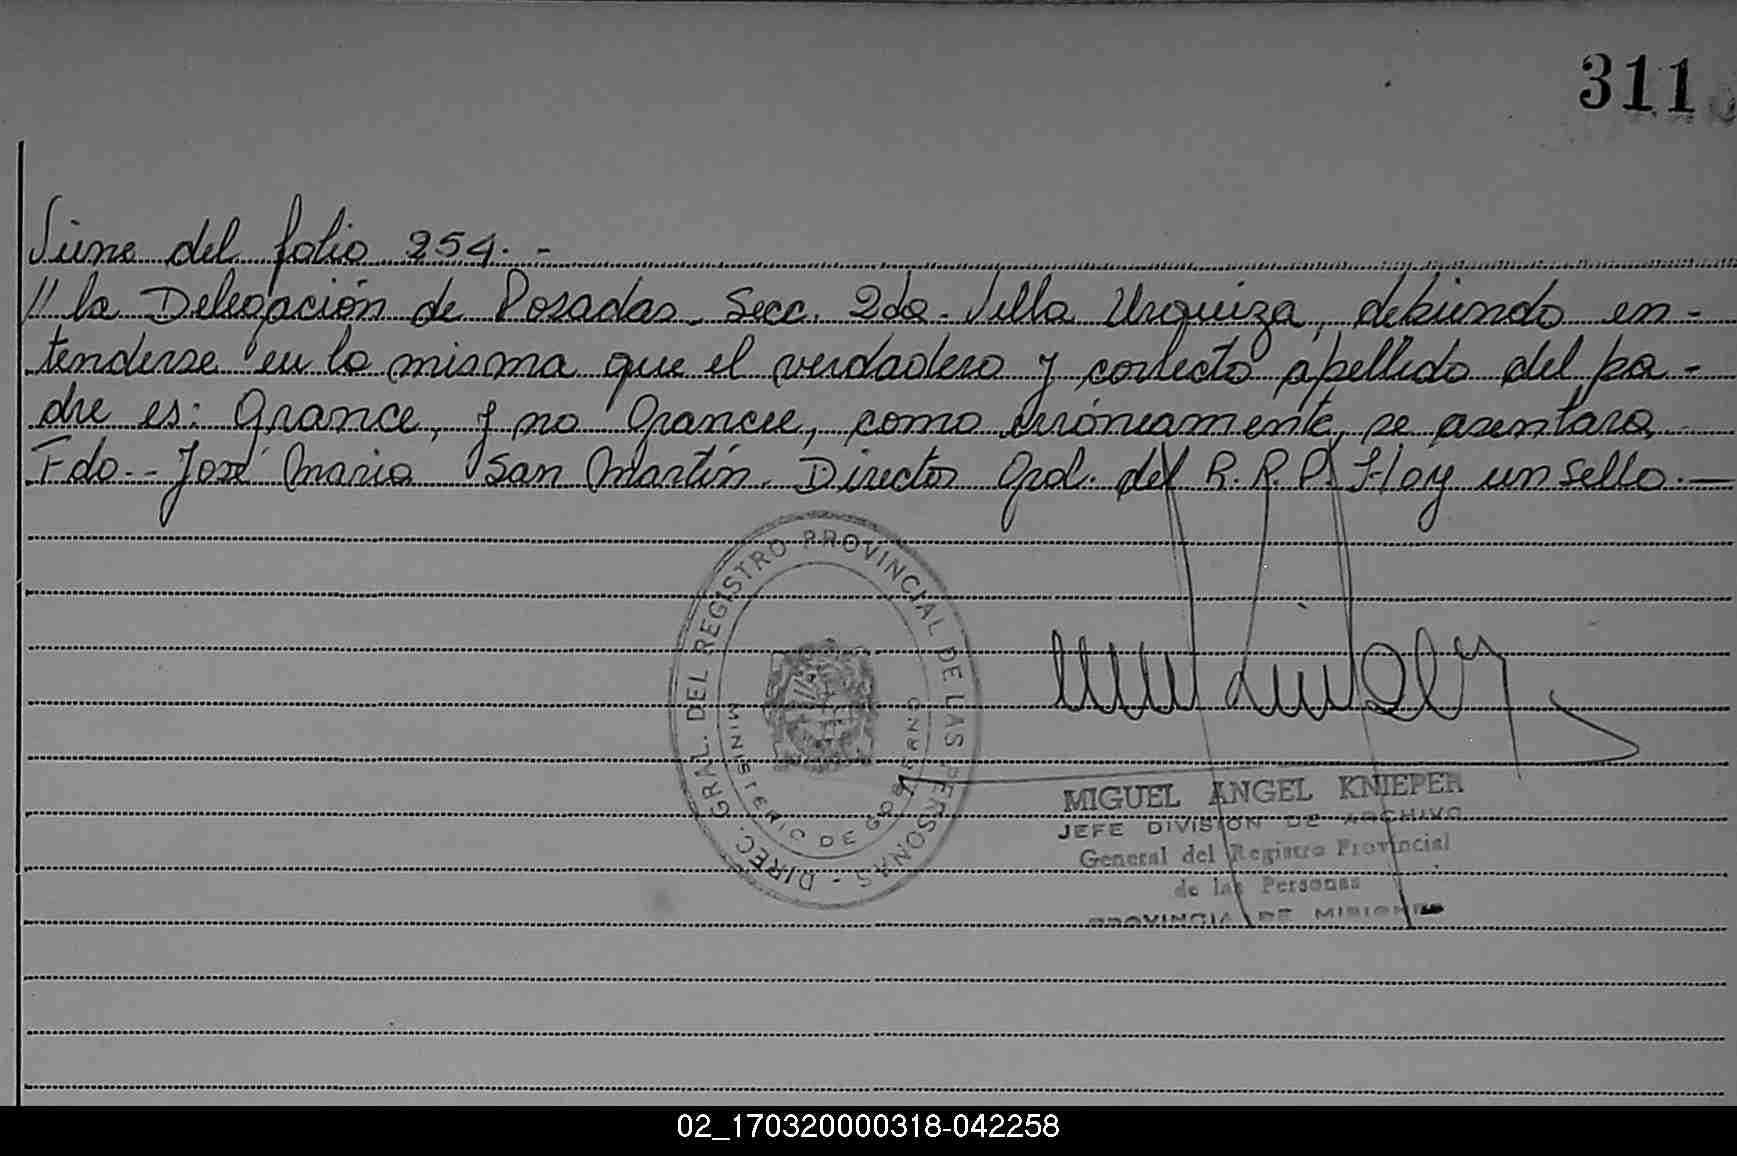 311
Viene del folio 254. -
// la Delegación de Posadas, Secc. 2da. Villa Urquiza, debiendo en-
tenderse en la misma que el verdadero y correcto apellido del pa-
dre es: Grance, y no Grancee, como erróneamente se asentara.
Fdo.- José Maria San Martín. Director Gral. del R.R.P. Hay un sello.-
DIREC. GRAL. DEL REGISTRO PROVINCIAL DE LAS PERSONAS -
MINISTERIO DE GOBIERNO
MIGUEL ANGEL KNIEPER
JEFE DIVISION DE ARCHIVO
General del Registro Provincial
de las Personas
PROVINCIA DE MISIONES
02_170320000318-042258